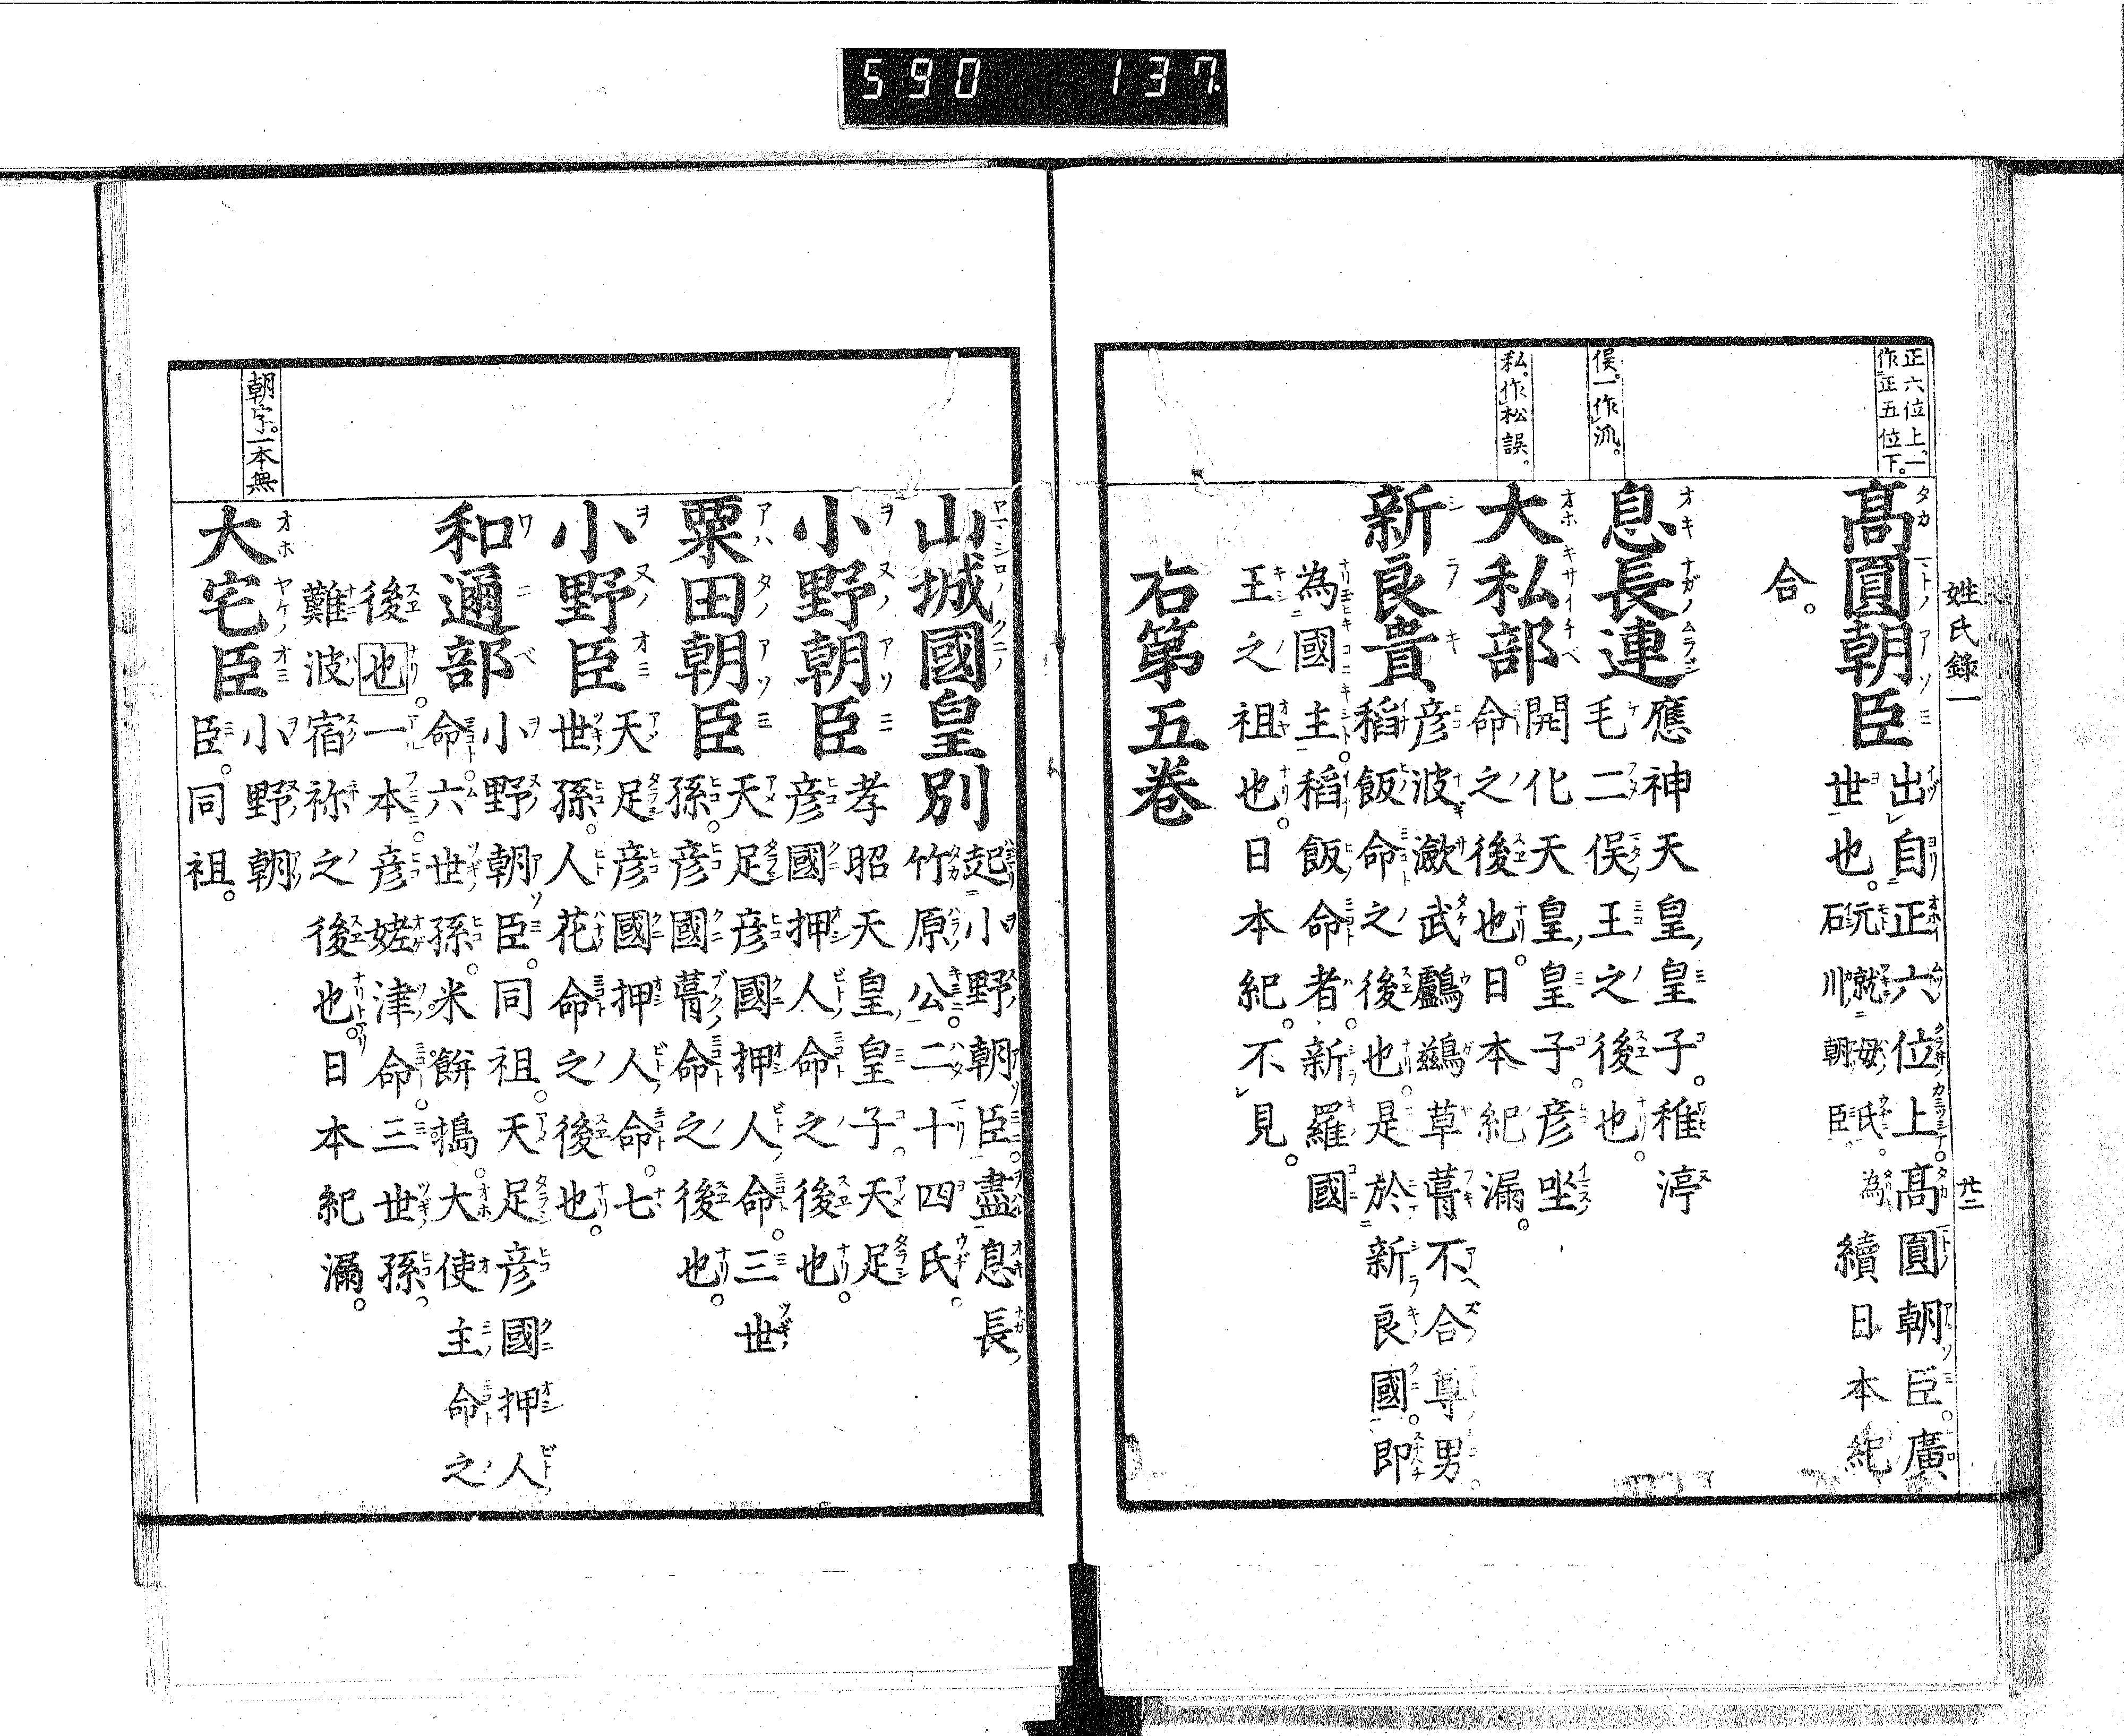 590 137
姓氏錄一
廿二
正六位上。一
作正五位下。
高圓朝臣 出自正六位上。高圓朝臣。廣
世也。元就母氏。為
石川朝臣 續日本紀
合。
俣。一作派。
息長連 應神天皇,皇子。稚渟
毛二俣王之後也。
私。作松誤。
大私部 開化天皇,皇子。彦坐
命之後也。日本紀漏。
新良貴 彦波瀲武鸕鷀草葺不合尊男。
稻飯命之後也。是於新良國。即
為國主。稻飯命者。新羅國
王之祖也。日本紀。不見。
右第五卷
山城國皇別 起小野朝臣。盡息長,
竹原公。二十四氏。
小野朝臣 孝昭天皇,皇子。天足
彦國押人,命之後也。
粟田朝臣 天足彦國押人,命。三世
孫。彦國葺命之後也。
小野臣 天足彦國押人,命。七
世孫。人花命之後也。
和邇部 小野朝臣。同祖。天足彦國押人,
命。六世孫。米餅搗。大使主命之
後也。一本。彦姥津命。三世孫。
難波宿祢之後也。日本紀漏。
朝字。一本無
大宅臣 小野朝
臣。同祖。